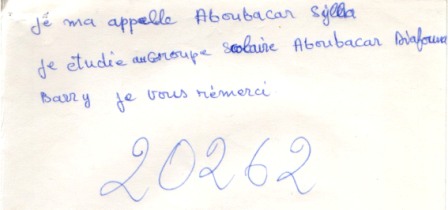 je ma appelle Aboubacar Sylla
je étudie au Groupe Scolaire Aboubacar Biafoura
Barry je vous rémerci
20262